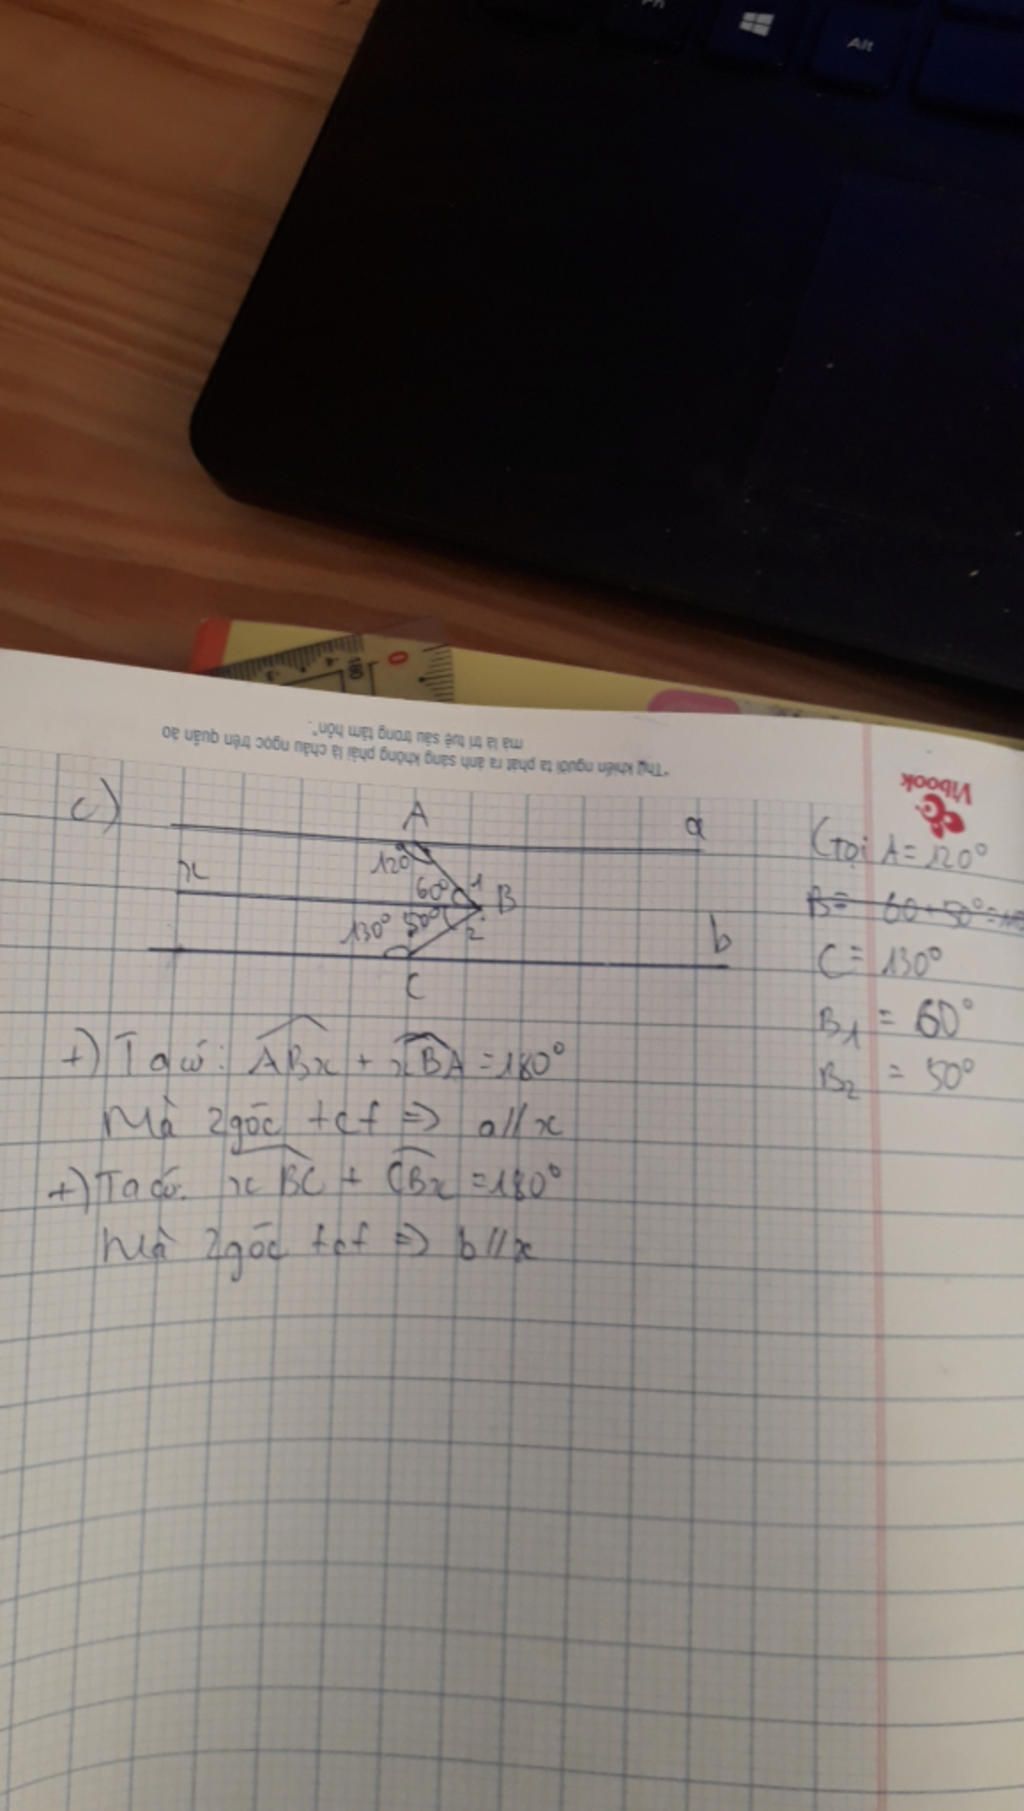 Fn
Alt
180
0
"Thứ khiến người ta phát ra ánh sáng không phải là châu ngọc trên quần áo
mà là trí tuệ sâu trong tâm hồn".
Vibook
c)
A
a
120°
x
60°
1
B
130°
50°
2
b
C
Gọi A = 120°
C = 130°
B1 = 60°
B2 = 50°
+) Ta có: ABx + xBA = 180°
Mà 2 góc tcf => a//x
+) Ta có: xBC + CBx = 180°
Mà 2 góc tcf => b//x